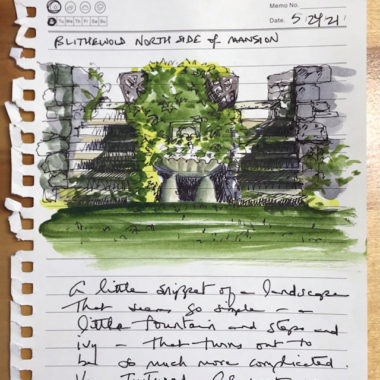 Memo No.
Mo Tu We Th Fr Sa Su
Date 5/29/21
BLITHEWOLD NORTH SIDE of MANSION
A little snippet of a landscape
That seems so simple - a
little fountain and steps and
ivy - that turns out to
be so much more complicated.
Textured